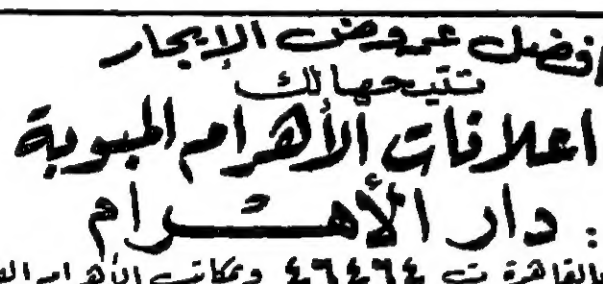 افضل عروض الإيجار
تتيحها لك
اعلانات الأهرام المبوبة
: دار الأهرام
بالقاهرة ت ٤٦٤٦٤ ومكاتب الأهرام